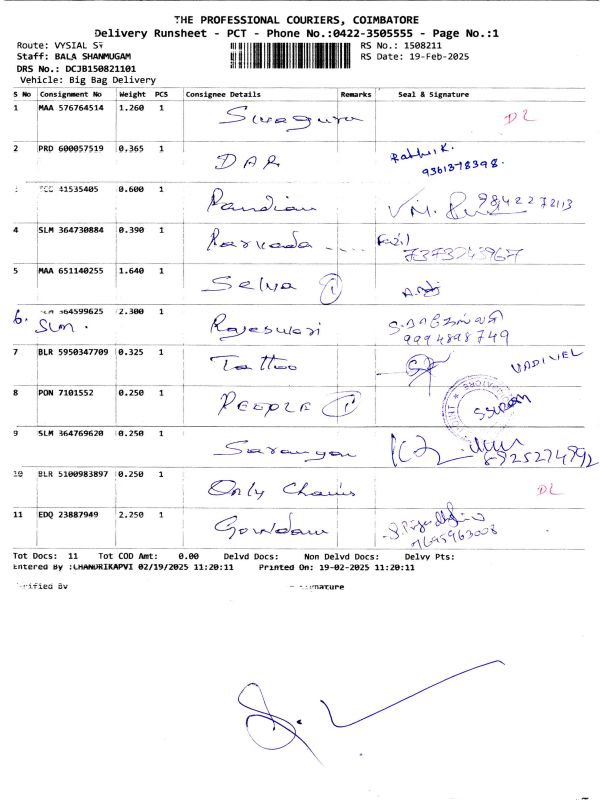 THE PROFESSIONAL COURIERS, COIMBATORE
Delivery Runsheet - PCT - Phone No.:0422-3505555 - Page No.:1
Route: VYSIAL ST
RS No.: 1508211
Staff: BALA SHANMUGAM
RS Date: 19-Feb-2025
DRS No.: DCJB150821101
Vehicle: Big Bag Delivery
S No Consignment No Weight PCS Consignee Details Remarks Seal & Signature
1 MAA 576764514 1.260 1 Sivaguru DL
2 PRD 600057519 0.365 1 DAR Rabhu K.
9361378398.
41535405 0.600 1 Pandian 9842272113
4 SLM 364730884 0.390 1 Fazil
7373243967
5 MAA 651140255 1.640 1 Selva 1
6. SLM. 364599625 2.300 1 Rajeswari
9994898749
7 BLR 5950347709 0.325 1 Tattoo VADIVEL
8 PON 7101552 0.250 1 PEOPLE 1
9 SLM 364769620 0.250 1 Saranyan 8925274892
10 BLR 5100983897 0.250 1 Only Chains DL
11 EDQ 23887949 2.250 1 Gowdam
Tot Docs: 11 Tot COD Amt: 0.00 Delvd Docs: Non Delvd Docs: Delvy Pts:
Entered By :CHANDRIKAPVI 02/19/2025 11:20:11 Printed On: 19-02-2025 11:20:11